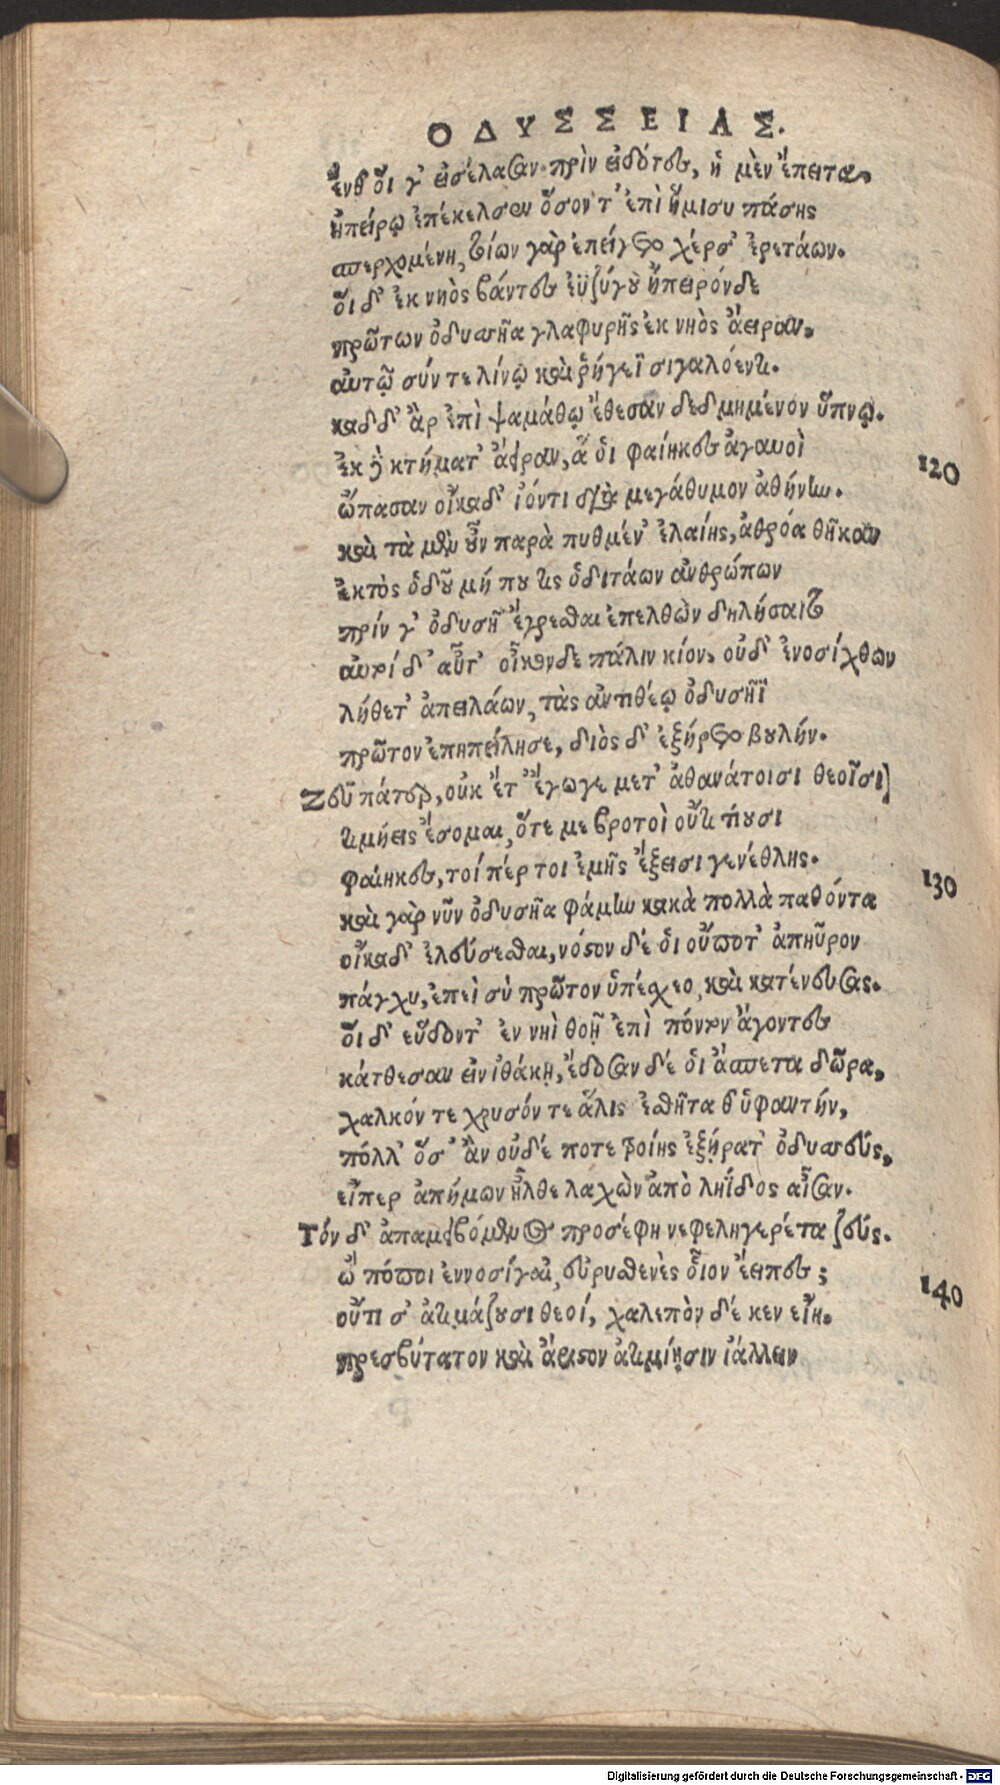 ΟΔΥΣΣΕΙΑΣ.
ἔνθ' οἵ γ' εἰσέλασαν πρὶν εἰδότες, ἡ μὲν ἔπειτα,
ἠπείρῳ ἐπέκελσεν ὅσον τ' ἐπὶ ἥμισυ πάσης
σπερχομένη, τίων γὰρ ἐπείγετο χέρσ' ἐρετάων.
οἵ δ' ἐκ νηὸς βάντες ἐϋζύγου ἤπειρόνδε
πρῶτον ὀδυσσῆα γλαφυρῆς ἐκ νηὸς ἄειραν,
αὐτῷ σύν τε λίνῳ καὶ ῥήγεϊ σιγαλόεντι.
καδδ' ἂρ ἐπὶ ψαμάθῳ ἔθεσαν δεδμημένον ὕπνῳ.
ἐκ δὲ κτήματ' ἄειραν, ἅ ὁι φαίηκες ἀγαυοὶ
120
ὤπασαν οἴκαδ' ἰόντι διὰ μεγάθυμον ἀθήνην.
καὶ τὰ μὲν οὖν παρὰ πυθμέν' ἐλαίης, ἀθρόα θῆκαν
ἐκτὸς ὁδοῦ μή που τις ὁδιτάων ἀνθρώπων
πρίν γ' ὀδυσῆ' ἔγρεσθαι ἐπελθὼν δηλήσαιτο
αὐτοὶ δ' αὖτ' οἶκονδε πάλιν κίον. οὐδ' ἐνοσίχθων
λήθετ' ἀπειλάων, τὰς ἀντιθέῳ ὀδυσῆϊ
πρῶτον ἐπηπείλησε, διὸς δ' ἐξήρετο βουλήν.
Ζεῦ πάτερ, οὐκ ἔτ' ἔγωγε μετ' ἀθανάτοισι θεοῖσι
τιμήεις ἔσομαι, ὅτε με βροτοὶ οὔτι τίουσι
φαίηκες, τοί πέρ τοι ἐμῆς ἔξεισι γενέθλης.
130
καὶ γὰρ νῦν ὀδυσῆα φάμην κακὰ πολλὰ παθόντα
οἴκαδ' ἐλεύσεσθαι, νόστον δέ ὁι οὔποτ' ἀπηῦρον
πάγχυ, ἐπεὶ σὺ πρῶτον ὑπέσχεο, καὶ κατένευσας.
οἵ δ' εὕδοντ' ἐν νηῒ θοῇ ἐπὶ πόντον ἄγοντες
κάτθεσαν εἰν ἰθάκῃ, ἔδοσαν δέ ὁι ἄσπετα δῶρα,
χαλκόν τε χρυσόν τε ἅλις ἐσθῆτα θ' ὑφαντήν,
πόλλ' ὅσ' ἂν οὐδέ ποτε τροίης ἐξήρατ' ὀδυσσεύς,
εἴπερ ἀπήμων ἦλθε λαχὼν ἀπὸ ληΐδος αἶσαν.
Τόν δ' ἀπαμειβόμενος προσέφη νεφεληγερέτα ζεύς.
ὢ πόποι ἐννοσίγαι, εὐρυσθενὲς οἷον ἔειπες;
140
οὔτι σ' ἀτιμάζουσι θεοί, χαλεπὸν δέ κεν εἴη.
πρεσβύτατον καὶ ἄριστον ἀτιμίῃσιν ἰάλλειν
Digitalisierung gefördert durch die Deutsche Forschungsgemeinschaft - DFG